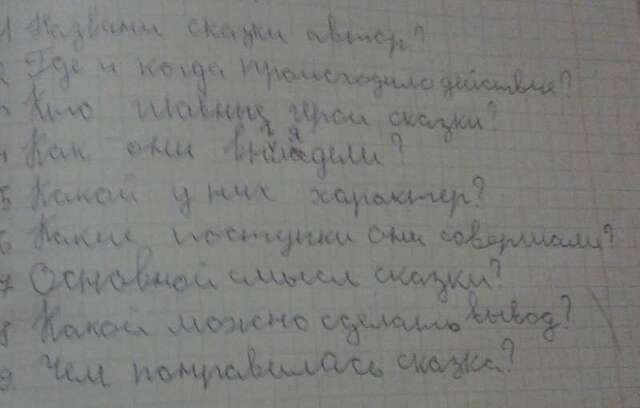 1 Названи сказки автор?
2 Где и когда происходило действие?
3 Кто главные герои сказки?
4 Как они выглядели?
5 Какой у них характер?
6 Какие поступки они совершали?
7 Основной смысл сказки?
8 Какой можно сделать вывод?
9 Чем понравилась сказка?